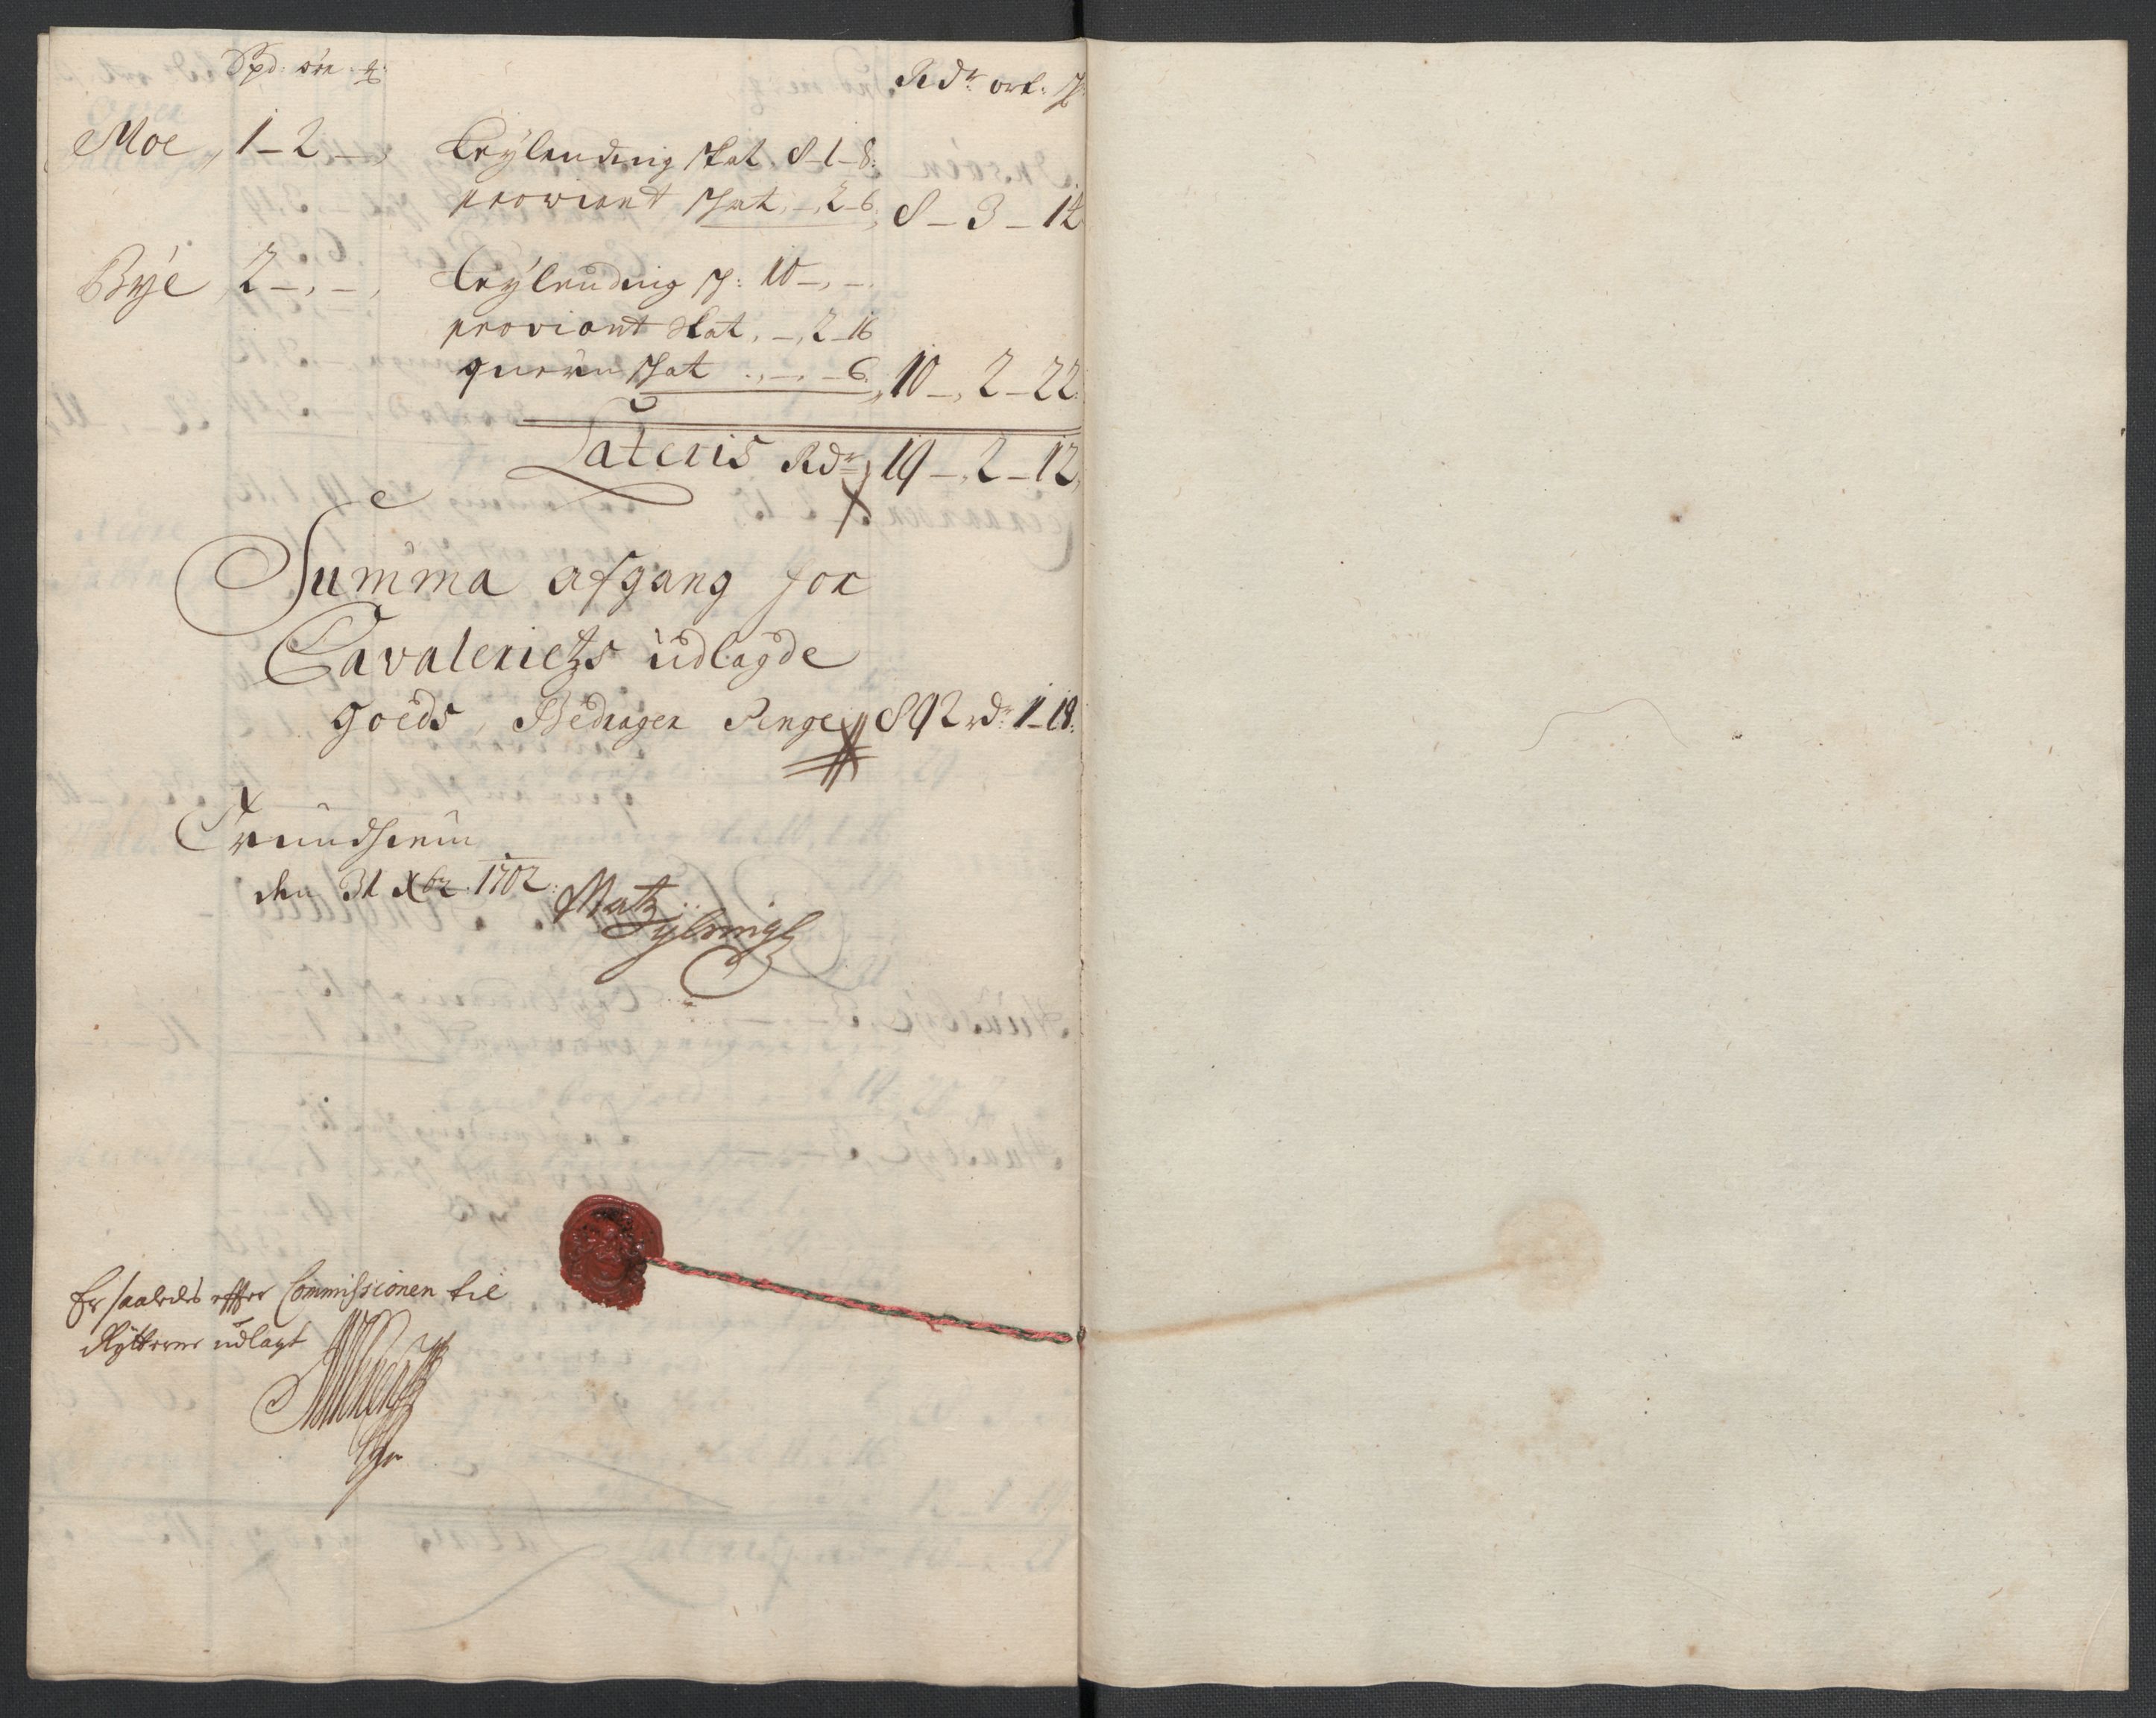 Spd: øre
Rdr ort: s:
Moe 1 – 2 – , Leylending skat 8 – 1 – 8:
proviant skat , – , 2 – 6: 8 – 3 – 14
Bye 2 – , – , Leylending s: 10 – , – ,
proviant skat , – , 2 – 16
qværn skat . , – , – 6 , 10 – , 2 – 22
Lateris Rdr 19 – , 2 – 12
Summa afgang for
Cavalerietzs udlagde
goeds , Bedrager Penge 892 rdr 1 – 18:
Trundhiem
den 31 Xbr 1702:
Matz
Er saaledes effter Commissionen til
Rytterne udlagt